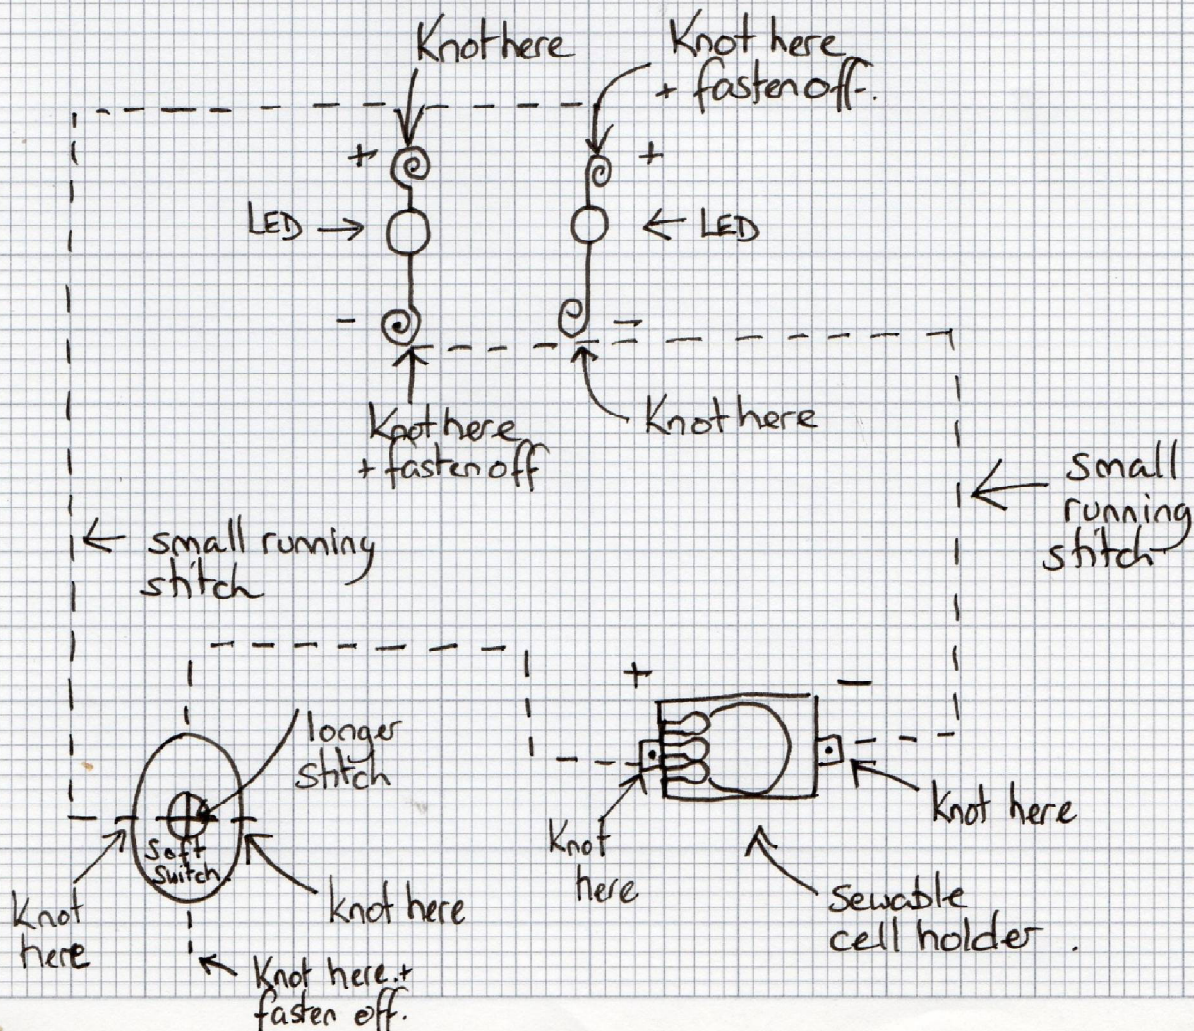 Knot here
Knot here
+ fasten off.
+
+
LED
LED
-
-
Knot here
+ fasten off
Knot here
small
running
stitch
small running
stitch
+
-
longer
stitch
Soft
Switch.
Knot
here
Knot here
Knot
here
knot here
Sewable
cell holder.
Knot here +
fasten off.